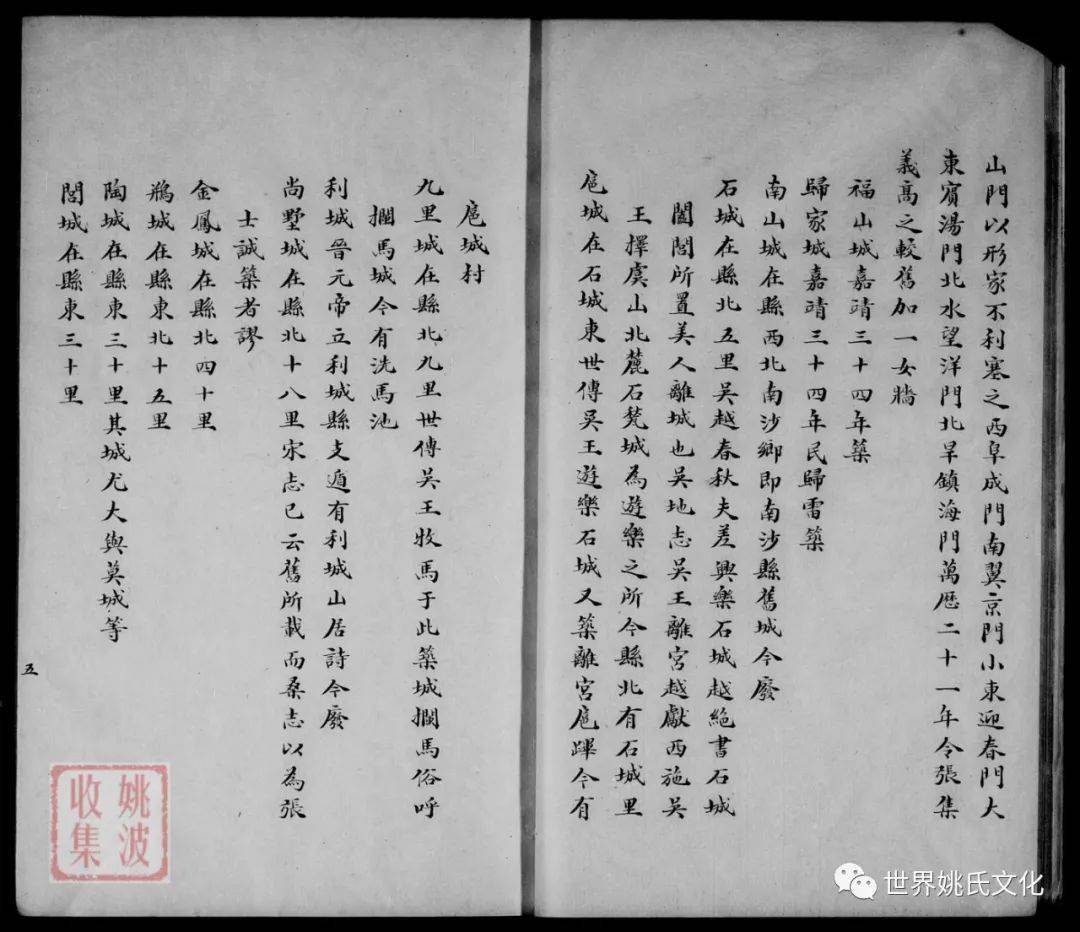 山門以形家不利塞之西阜成門南翼京門小東迎春門大
東賓湯門北水望洋門北旱鎮海門萬厯二十一年令張集
義高之較舊加一女牆
福山城嘉靖三十四年築
歸家城嘉靖三十四年民歸雷築
南山城在縣西北南沙鄉即南沙縣舊城今廢
石城在縣北五里吳越春秋夫差興樂石城越絶書石城
闔閭所置美人離城也吳地志吳王離宮越獻西施吳
王擇虞山北麓石甃城為遊樂之所今縣北有石城里
扈城在石城東世傳吳王遊樂石城又築離宮扈蹕今有
扈城村
九里城在縣北九里世傳吳王牧馬于此築城攔馬俗呼
攔馬城今有洗馬池
利城晉元帝立利城縣支遁有利城山居詩今廢
尚墅城在縣北十八里宋志已云舊所載而桑志以為張
士誠築者謬
金鳳城在縣北四十里
鴉城在縣東北十五里
陶城在縣東三十里其城尤大與莫城等
閭城在縣東三十里
五
姚波
收集
世界姚氏文化